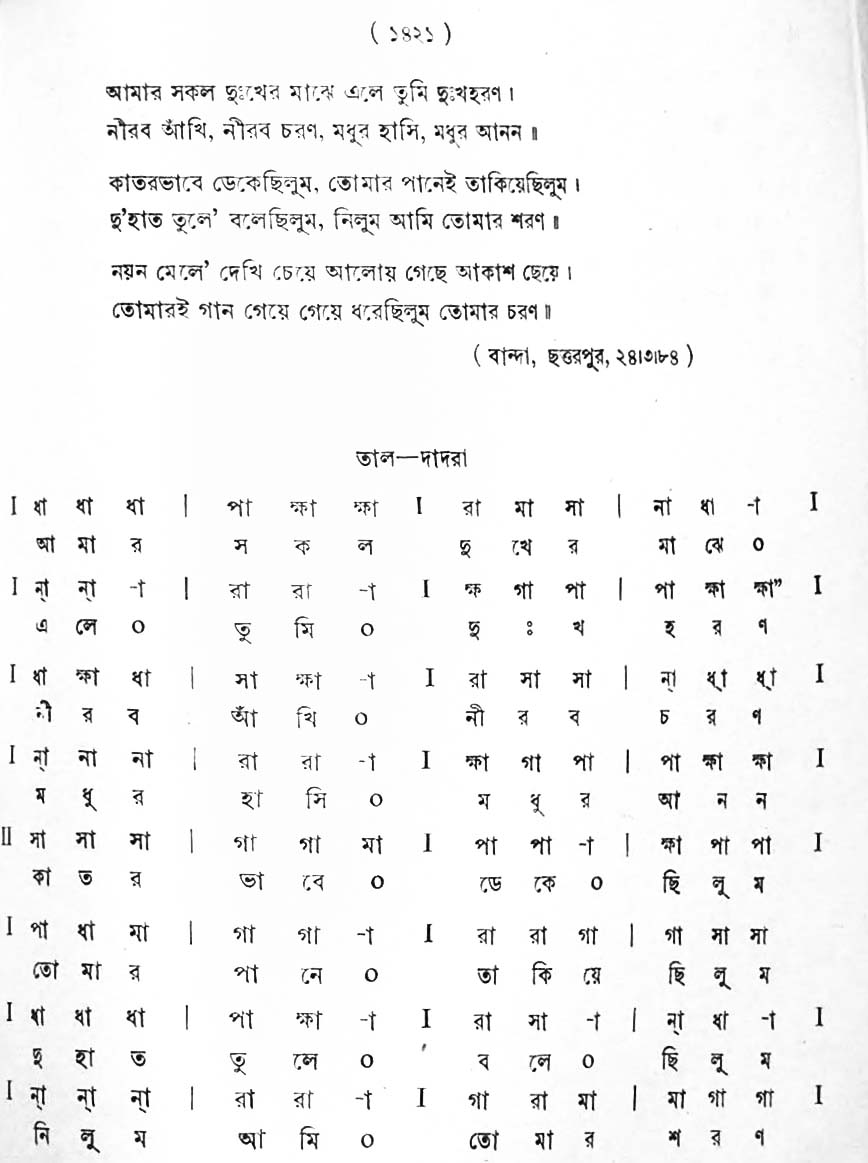 ( ১৪২১ )
আমার সকল দুঃখের মাঝে এলে তুমি দুঃখহরণ।
নীরব আঁখি, নীরব চরণ, মধুর হাসি, মধুর আনন॥
কাতরভাবে ডেকেছিলুম, তোমার পানেই তাকিয়েছিলুম।
দু'হাত তুলে' বলেছিলুম, নিলুম আমি তোমার শরণ॥
নয়ন মেলে' দেখি চেয়ে আলোয় গেছে আকাশ ছেয়ে।
তোমারই গান গেয়ে গেয়ে ধরেছিলুম তোমার চরণ॥
( বান্দা, ছত্তরপুর, ২৪।৩।৮৪ )
তাল—দাদরা
I ধা ধা ধা | পা ক্ষা ক্ষা I রা মা সা | না ধা -া I
আ মা র স ক ল দু খে র মা ঝে ০
I না্ না্ -া | রা রা -া I ক্ষ গা পা | পা ক্ষা ক্ষা” I
এ লে ০ তু মি ০ দু ঃ খ হ র ণ
I ধা ক্ষা ধা | সা ক্ষা -া I রা সা সা | না্ ধা্ ধা্ I
নী র ব আঁ খি ০ নী র ব চ র ণ
I না্ না না | রা রা -া I ক্ষা গা পা | পা ক্ষা ক্ষা I
ম ধু র হা সি ০ ম ধু র আ ন ন
II সা সা সা | গা গা মা I পা পা -া | ক্ষা পা পা I
কা ত র ভা বে ০ ডে কে ০ ছি লু ম
I পা ধা মা | গা গা -া I রা রা গা | গা সা সা
তো মা র পা নে ০ তা কি য়ে ছি লু ম
I ধা ধা ধা | পা ক্ষা -া I রা সা -া | না্ ধা -া I
দু হা ত তু লে ০ ' ব লে ০ ছি লু ম
I না্ না্ না্ | রা রা -া I গা রা মা | মা গা গা I
নি লু ম আ মি ০ তো মা র শ র ণ